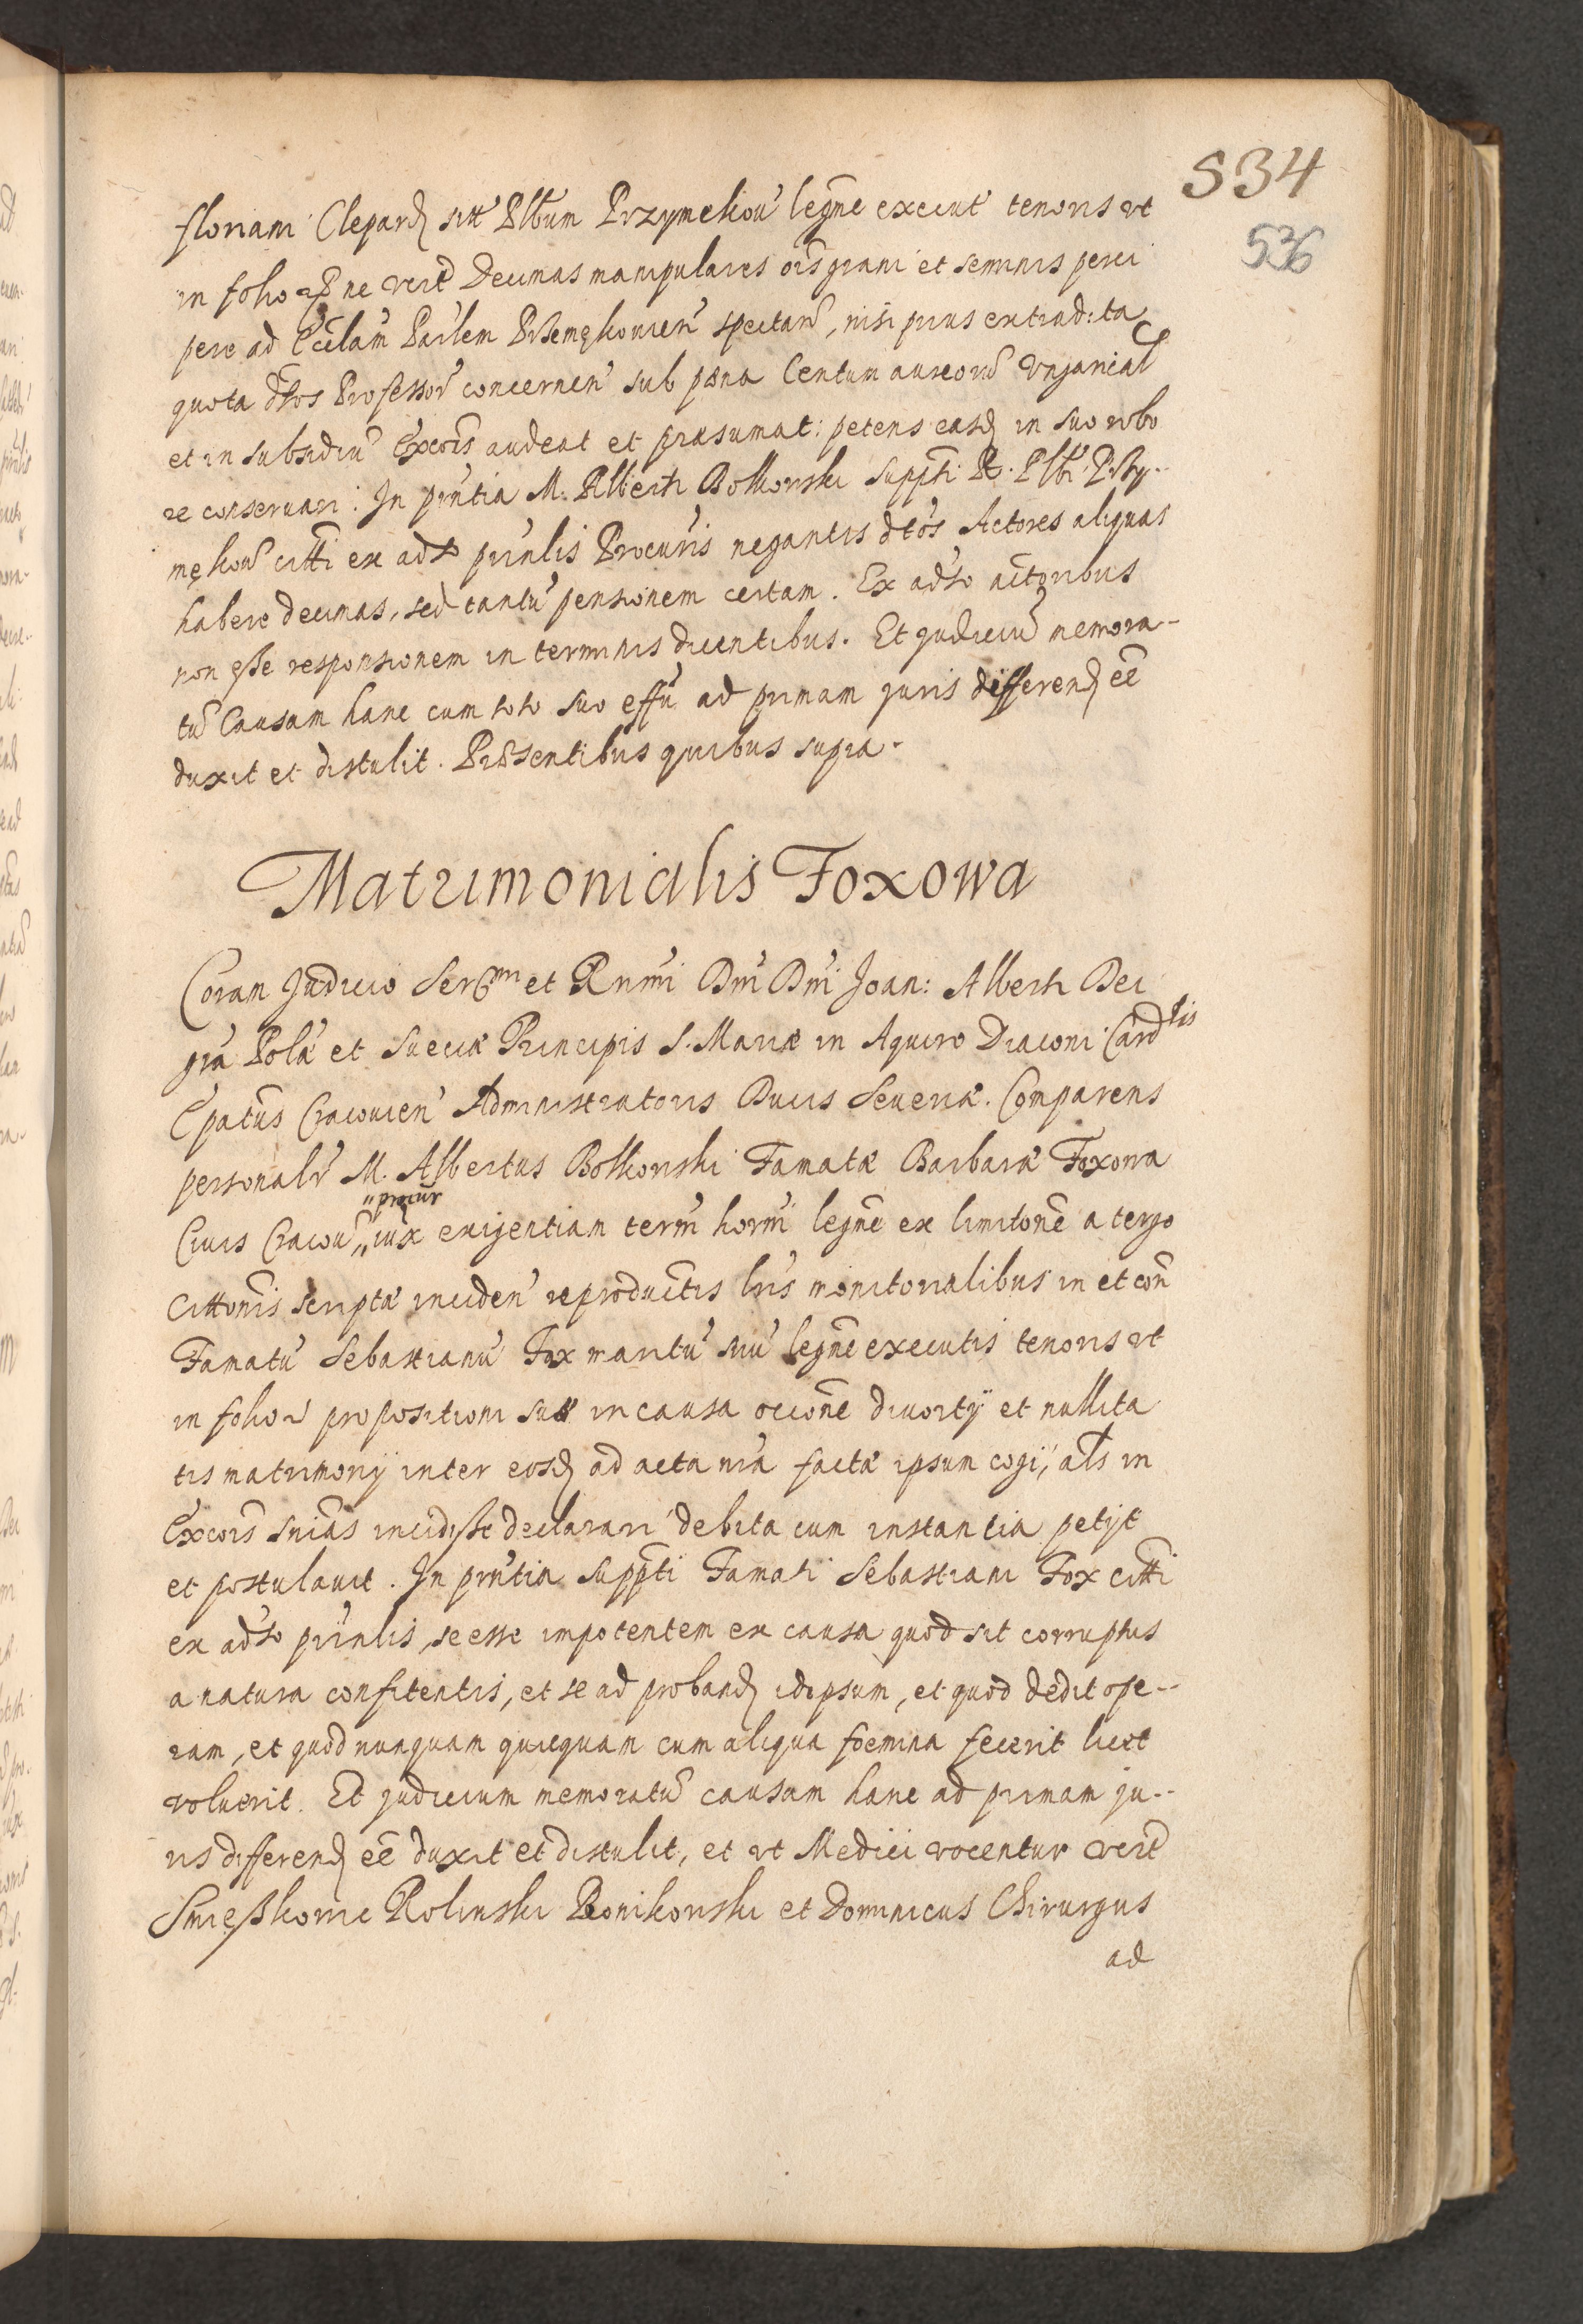 534
536
floriani Clepard sitt Plbum Przymekov legne execut tenoris vt
in folio ne vert Decimas manipulares ois grani et seminis perci
pere ad Ecclam Parlem Przemękovien spectan, nisi prius extradita
quota dtos Professor concernen sub pæna Centum aureoru Vngarical
et in subsidiu Excois audeat et præsumat: petens easd in suo robo
re conservari: In pntia M. Alberti Bolkowski suppti R. Plbi Przy--
mękov citti ex adto prinlis Procuris negantis dtos Actores aliquas
habere decimas, sed tantu pensionem certam. Ex adto actoribus
non eße responsionem in terminis dicentibus. Et judiciu memora--
tu Causam hanc cum toto suo effu ad primam juris differend eē
duxit et distulit. Præsentibus quibus supra.
Matrimonialis Foxowa
Coram Judicio Sermi et Rnmi Dni Dni Joan: Alberti Dei
gra Polæ et Sueciæ Principis S. Mariæ in Aquiro Diaconi Cardlis
Epatus Cracovien Administratoris Ducis Severiæ. Comparens
personalr M. Albertus Bolkowski Famatæ Barbaræ Foxowa
"procur
Civis Cracov "iux exigentiam term horni legne ex limitone a tergo
cittonis scriptæ inciden reproductis lris monitorialibus in et con
Famatu Sebastianu Fox maritu suu legne executis tenoris vt
in folio propositioni suæ in causa occone divortÿ et nullita
tis matrimonÿ inter eosd ad acta nra factæ ipsum cogi, als in
Excois snias incidiße declarari debita cum instantia petÿt
et postulavit. In pntia suppti Famati Sebastiani Fox citti
ex adto prinlis, se esse impotentem ex causa quod sit corruptus
a natura confitentis, et se ad proband idipsum, et quod dedit ope--
ram, et quod nunquam quicquam cum aliqua foemina fecerit licet
voluerit. Et judicium memoratu causam hanc ad primam ju--
ris differend eē duxit et distulit, et vt Medici vocentur vert
Smieszkowic Rolinski Bonikowski et Dominicus Chirurgus
ad